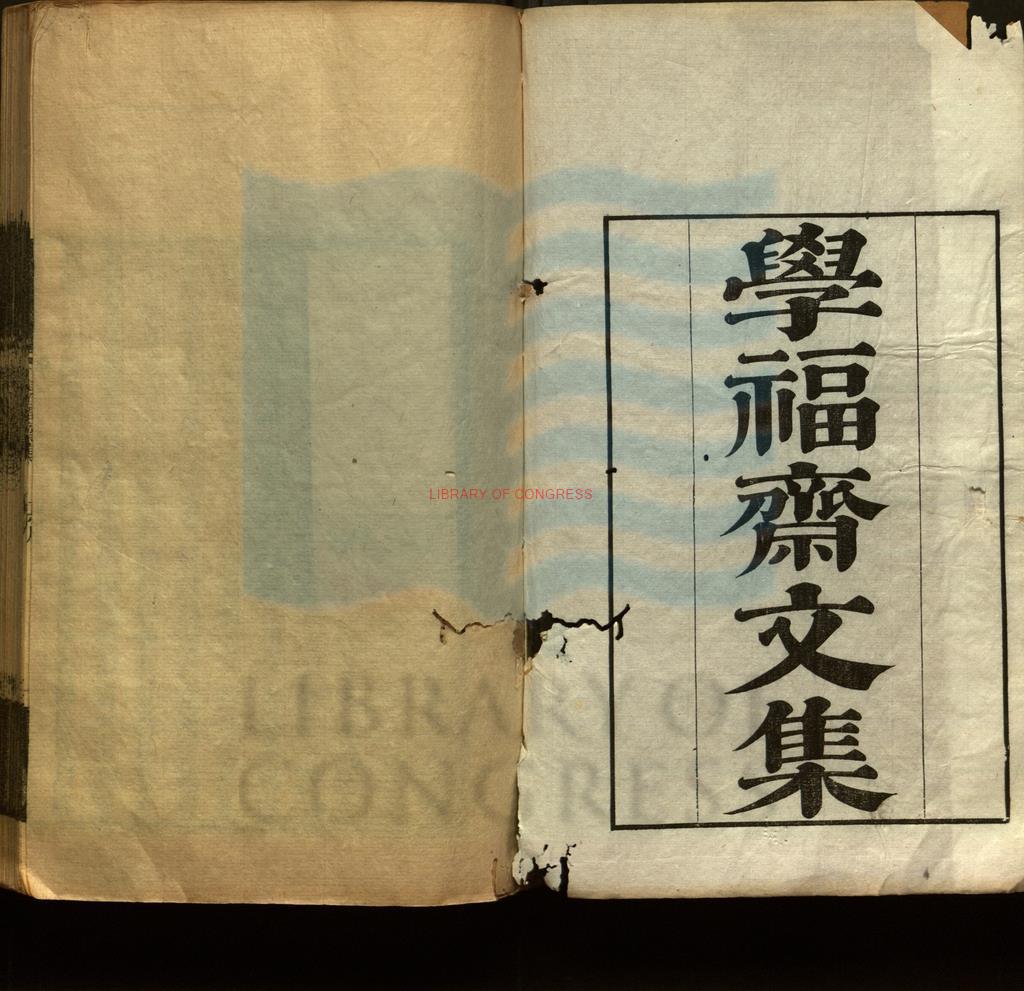 學福齋文集
LIBRARY OF CONGRESS
LIBRARY OF
CONGRESS